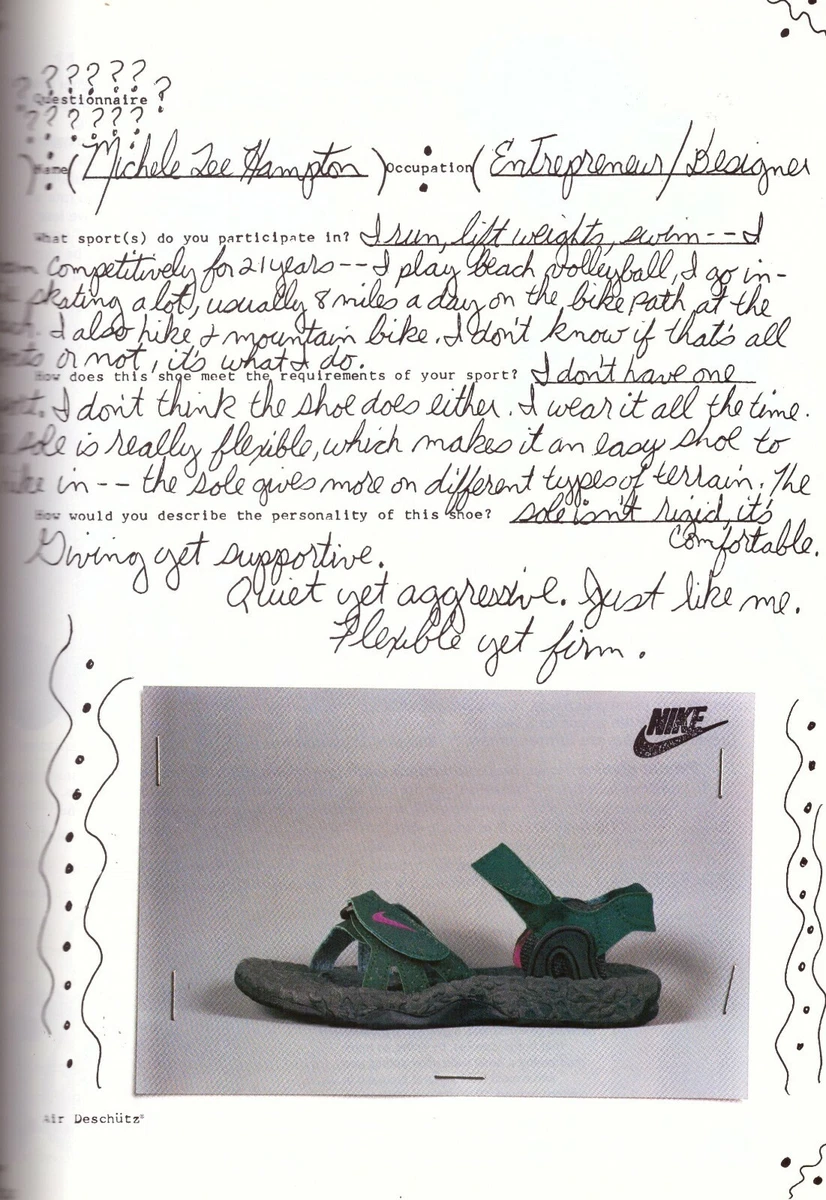 ? ? ? ? ? ?
Questionnaire ?
? ? ? ? ? ?
Name (Michele Lee Hampton) Occupation (Entrepreneur/Designer
What sport(s) do you participate in? I run, lift weights, swim--I
competitively for 21 years--I play beach volleyball, I go in-
skating a lot, usually 8 miles a day on the bike path at the
I also hike & mountain bike. I don't know if that's all
or not, it's what I do.
How does this shoe meet the requirements of your sport? I don't have one
I don't think the shoe does either. I wear it all the time.
sole is really flexible, which makes it an easy shoe to
in-- the sole gives more on different types of terrain. The
How would you describe the personality of this shoe? sole isn't rigid, it's
comfortable.
Giving yet supportive.
Quiet yet aggressive. Just like me.
Flexible yet firm.
NIKE
Air Deschütz